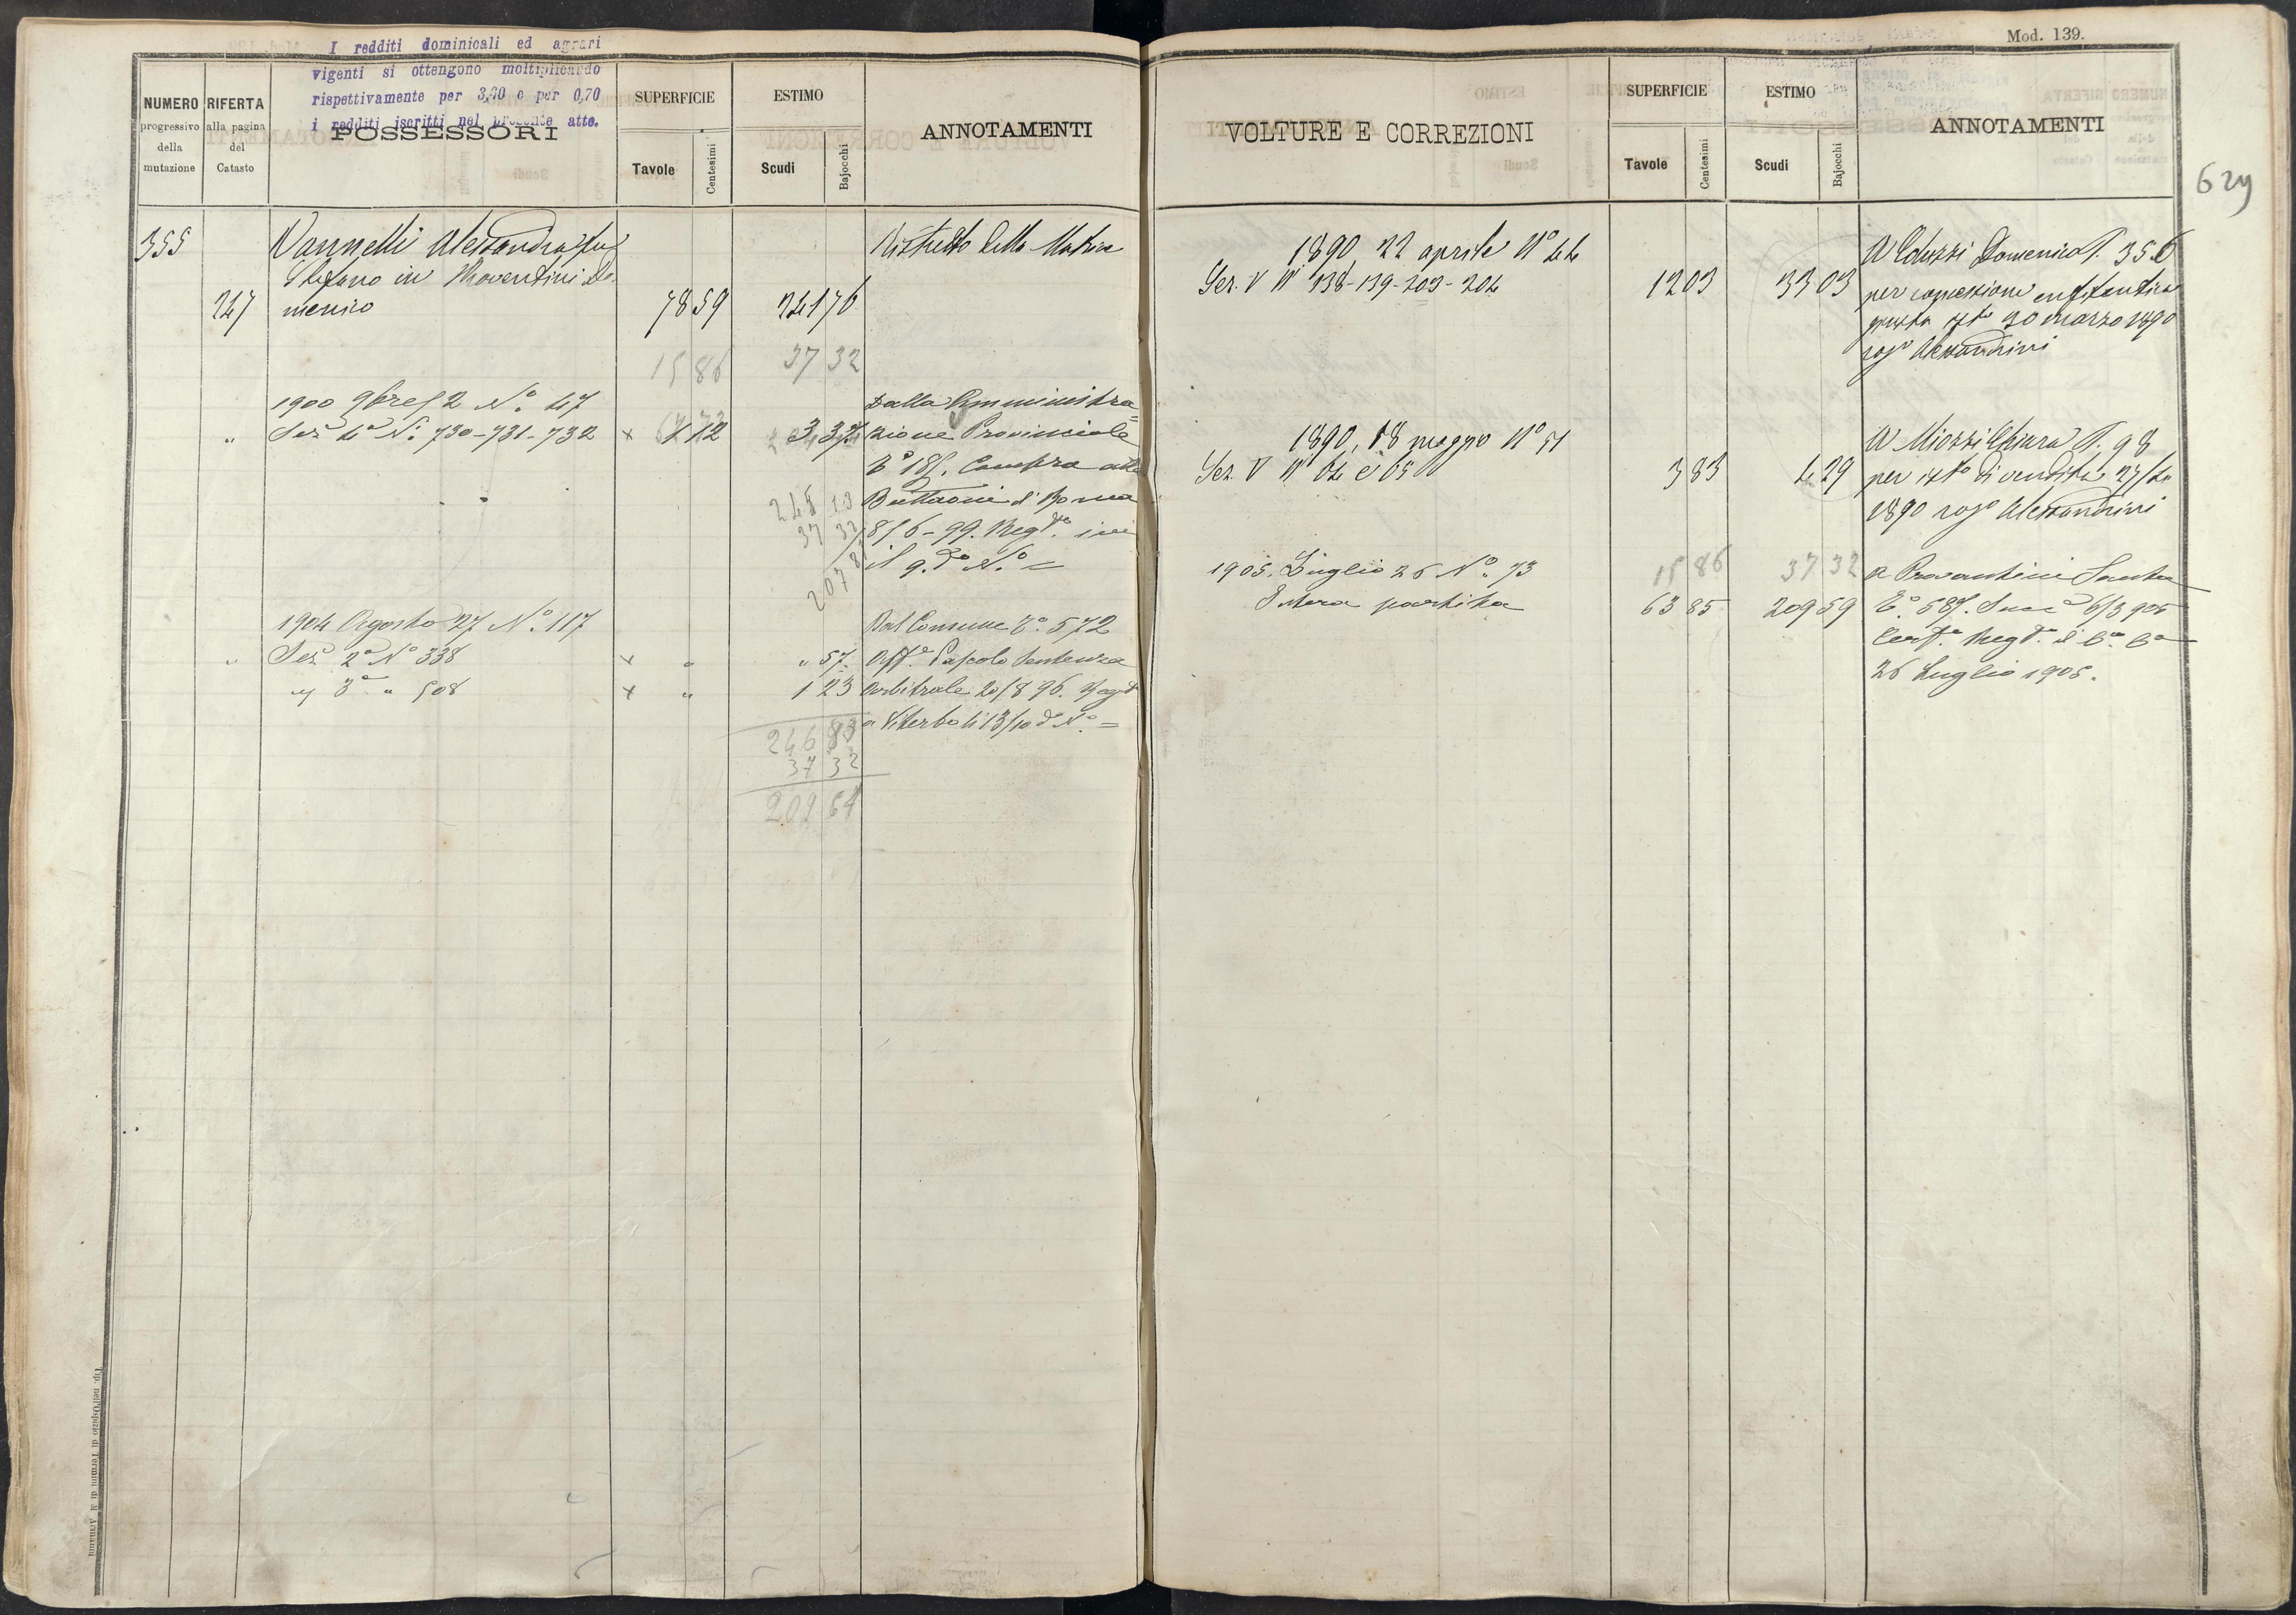 I redditi dominicali ed agrari
vigenti si ottengono moltiplicando
rispettivamente per 3,60 e per 0,70
i redditi iscritti nel presente atto.
NUMERO
progressivo
della
mutazione
RIFERTA
alla pagina
del
Catasto
POSSESSORI
SUPERFICIE
Tavole
Centesimi
ESTIMO
Scudi
Bajocchi
ANNOTAMENTI
355
Vannelli Alessandra fu
Stefano in Proventini Do-
247 menico 78 59 241 76
Ristretto della Matrice
15 86 37 32
1900 9bre 2 Nº 47
" Sez. 4ª Nº 730-731-732 x 1 12 3 37
Dalla Amministra=
zione Provinciale
Tº 185. Compra atto
Buttaoni di Roma
8/6-99. Regto. ivi
il 9. do Nº =
241 13
37 32
207 81
1904 Agosto 27 Nº 117
" Sez. 2ª Nº 338 x " " 57
" 3ª " 508 x " 1 23
Dal Comune Tº. 572
Affº Pascolo Sentenza
Arbitrale 20/8 96. Regta
a Viterbo li 13/10 do Nº =
246 93
37 32
209 61
Mod. 139.
VOLTURE E CORREZIONI
SUPERFICIE
Tavole
Centesimi
ESTIMO
Scudi
Bajocchi
ANNOTAMENTI
629
1890, 22 aprile Nº 44
Sez. V Nº 138-139-203-204 12 03 33 03
A Coluzzi Domenico T. 356
per concessione enfiteutica
giusta isto 30 marzo 1890
rogº Alessandrini
1890, 18 maggio Nº 51
Sez. V Nº 64 e 65 3 83 4 29
A Miozzi Chiara T. 98
per isto di vendita 27/4
1890 rogº Alessandrini
15 86 37 32
1905. Luglio 26 Nº. 73
Intera partita 63 85 209 59
a Proventini Santa
Tº. 585. Succe 6/3 905
26 Luglio 1905.
Tip. nell'Ospizio di Termini di A. Armanni